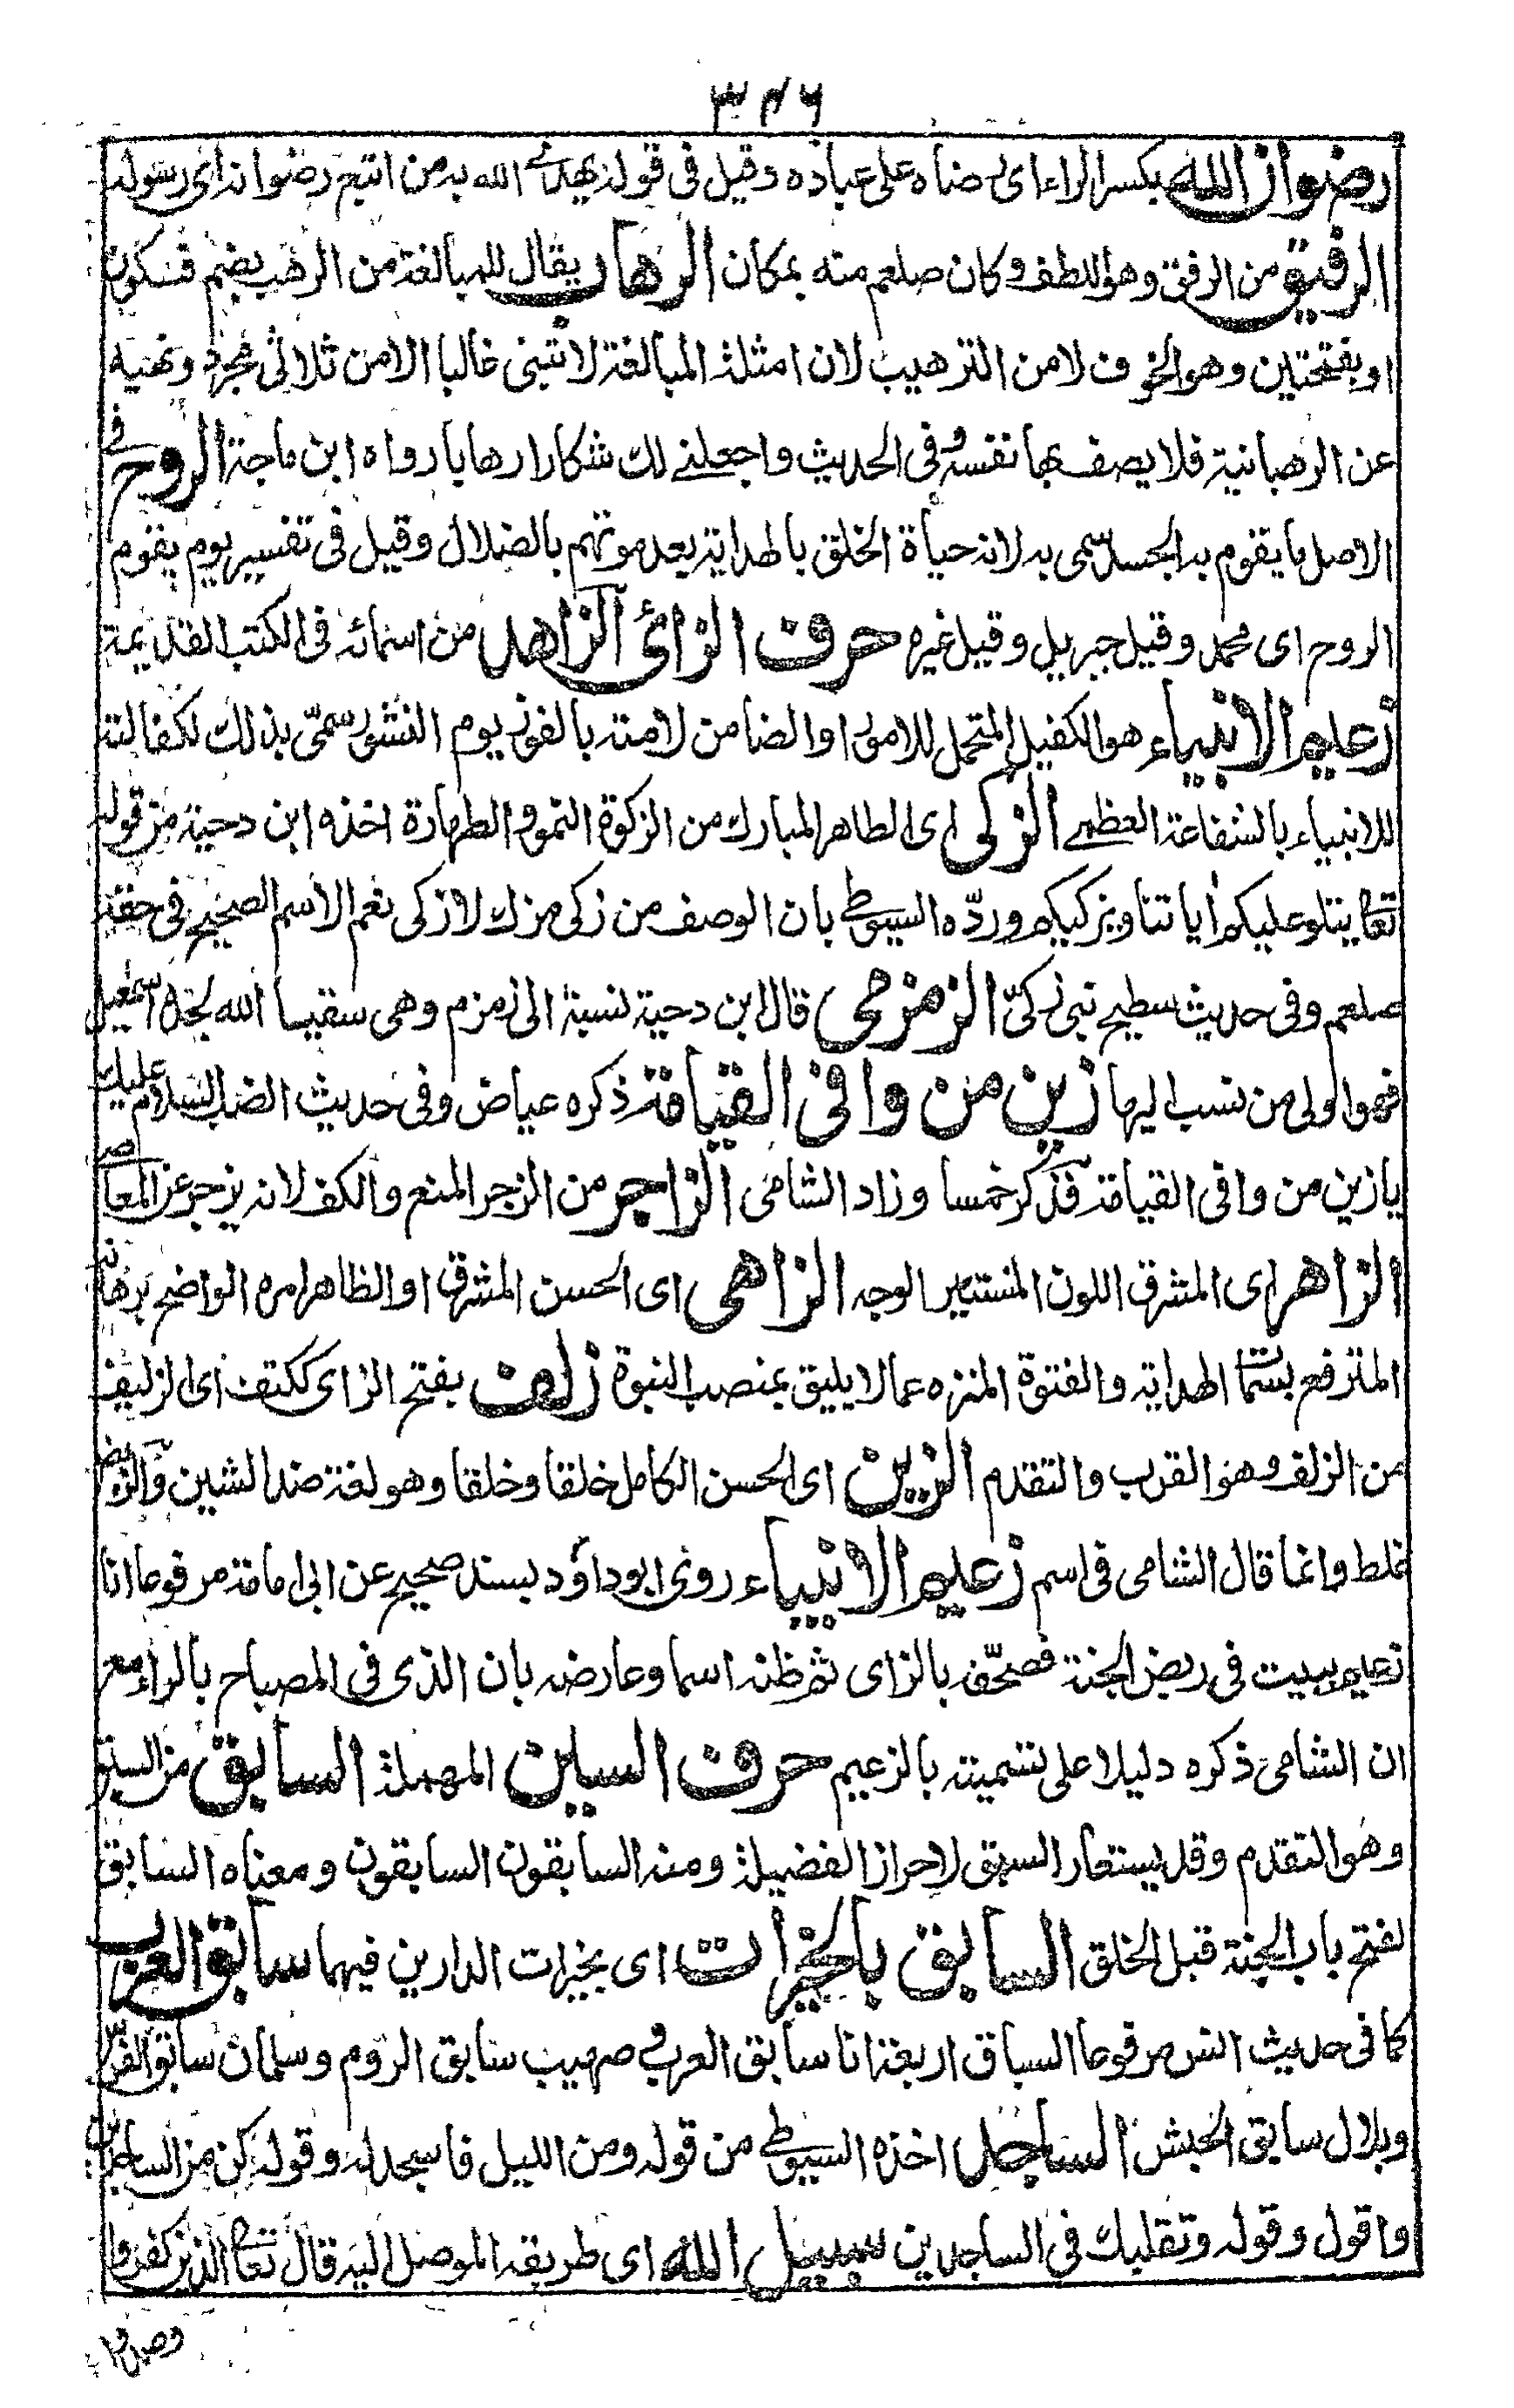 ٣٤٦
رضوان الله بكسر الراء اى رضاه على عباده وقيل فى قوله يهدى الله به من اتبع رضوانه اى رسوله
الرفيق من الرفق وهو اللطف وكان صلعم منه بمكان الرهاب يقال للمبالغة من الرهب بضم فسكون
او بفتحتين وهو الخوف لا من الترهيب لان امثلة المبالغة لا تبنى غالبا الا من ثلاثى مجرد ونهيه
عن الرهبانية فلا يصف بها نفسه وفى الحديث واجعلنے لك شكارا رهابا رواه ابن ماجة الروح فى
الاصل ما يقوم به الجسد سمى به لانه حياة الخلق بالهداية بعد موتهم بالضلال وقيل فى تفسير يوم يقوم
الروح اى محمد وقيل جبريل وقيل غيره حرف الزائ الزاهد من اسمائه فى الكتب القديمة
زعيم الانبياء هو الكفيل المتحمل للامور او الضامن لامته بالفوز يوم النشور سمّى بذلك لكفالته
للانبياء بالشفاعة العظمے الزكى اى الطاهر المبارك من الزكوة النمو والطهارة اخذه ابن دحية من قوله
تعا يتلو عليكم اٰياتنا ويزكيكم وردّه السيوطى بان الوصف من زكى مزك لا زكى نعم الاسم الصحيح فى حقه
صلعم وفى حديث سطيح نبى زكىّ الزمزمى قال ابن دحية نسبة الى زمزم وهى سقيا الله لجده اسمٰعيل
فهو اولى من نسب اليها زين من وافى القيامة ذكره عياض وفى حديث الضب السلام عليك
يا زين من وافى القيامة فذكر خمسا وزاد الشامى الزاجر من الزجر المنع والكف لانه يزجر عن المعاصى
الزاهر اى المشرق اللون المستنير الوجه الزاهى اى الحسن المشرق او الظاهر امره الواضح برهانه
المترفع بسما الهداية والفتوة المنزه عما لا يليق بمنصب النبوة زلف بفتح الزاى ككتف اى الزليف
من الزلف وهو القرب والتقدم الزين اى الحسن الكامل خلقا وخلقا وهو لغة ضد الشين والزين
غلط وانما قال الشامى فى اسم زعيم الانبياء روى ابو داؤد بسند صحيح عن ابى امامة مرفوعا انا
زعيم ببيت فى ربض الجنة فصحّف بالزاى ثم ظنه اسما وعارضه بان الذى فى المصباح بالراء مع
ان الشامى ذكره دليلا على تسميته بالزعيم حرف السين المهملة السابق من السبق
وهو التقدم وقد يستعار السبق لاحراز الفضيلة ومنه السابقون السابقون ومعناه السابق
لفتح باب الجنة قبل الخلق السابق بالخيرات اى بخيرات الدارين فيهما سابق العرب
كما فى حديث انس مرفوعا السباق اربعة انا سابق العرب و صهيب سابق الروم وسلمان سابق الفرس
وبلال سابق الحبش الساجد اخذه السيوطى من قوله ومن الليل فاسجد له وقوله كن من الساجدين
واقول وقوله وتقلبك فى الساجدين سبيل الله اى طريقه الموصل اليه قال تعا الذين كفروا
وصدوا